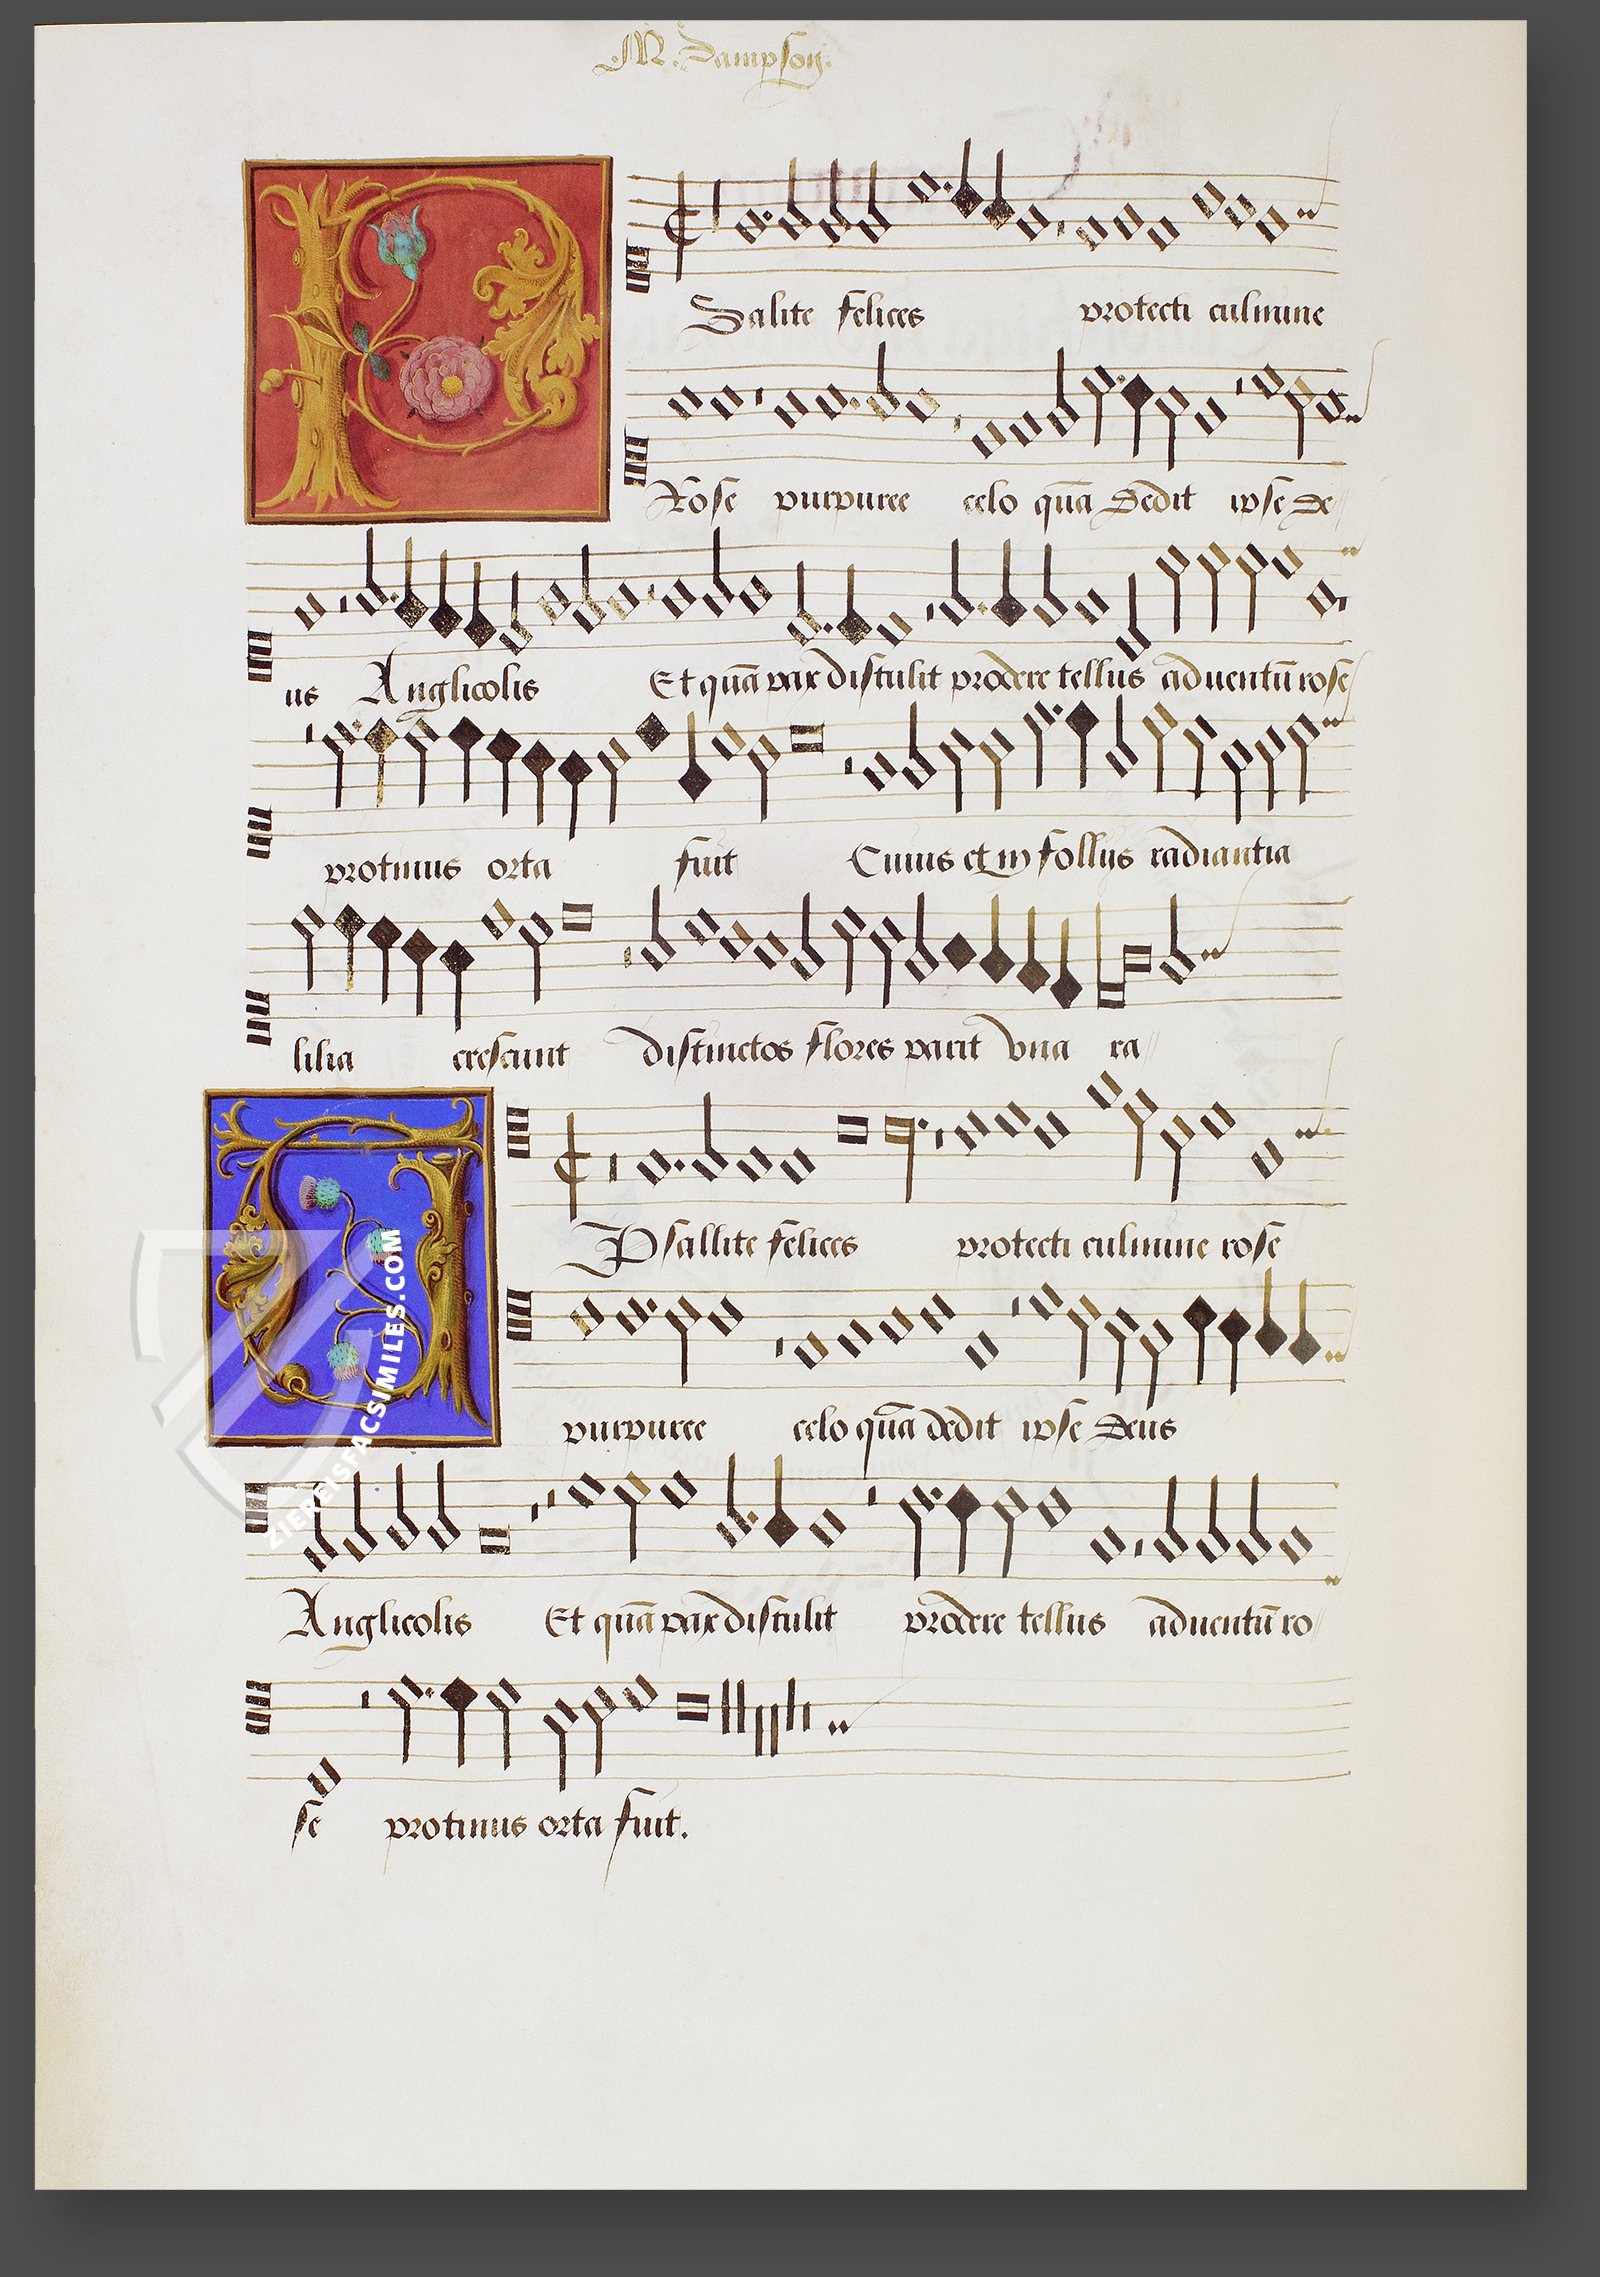 M. Sampson.
PSalite felices protecti culmine
Rose purpuree celo quā Dedit ipse De
us Anglicolis Et quā pax distulit prodere tellus aduentū rose
protinus orta fuit Cuius et in follijs radiantia
lilia crescunt distinctos flores parit vna ra
Psallite felices protecti culmine rose
purpuree celo quā dedit ipse Deus
Anglicolis Et quā pax distulit prodere tellus aduentū ro
se protinus orta fuit.
ZIEREISFACSIMILES.COM